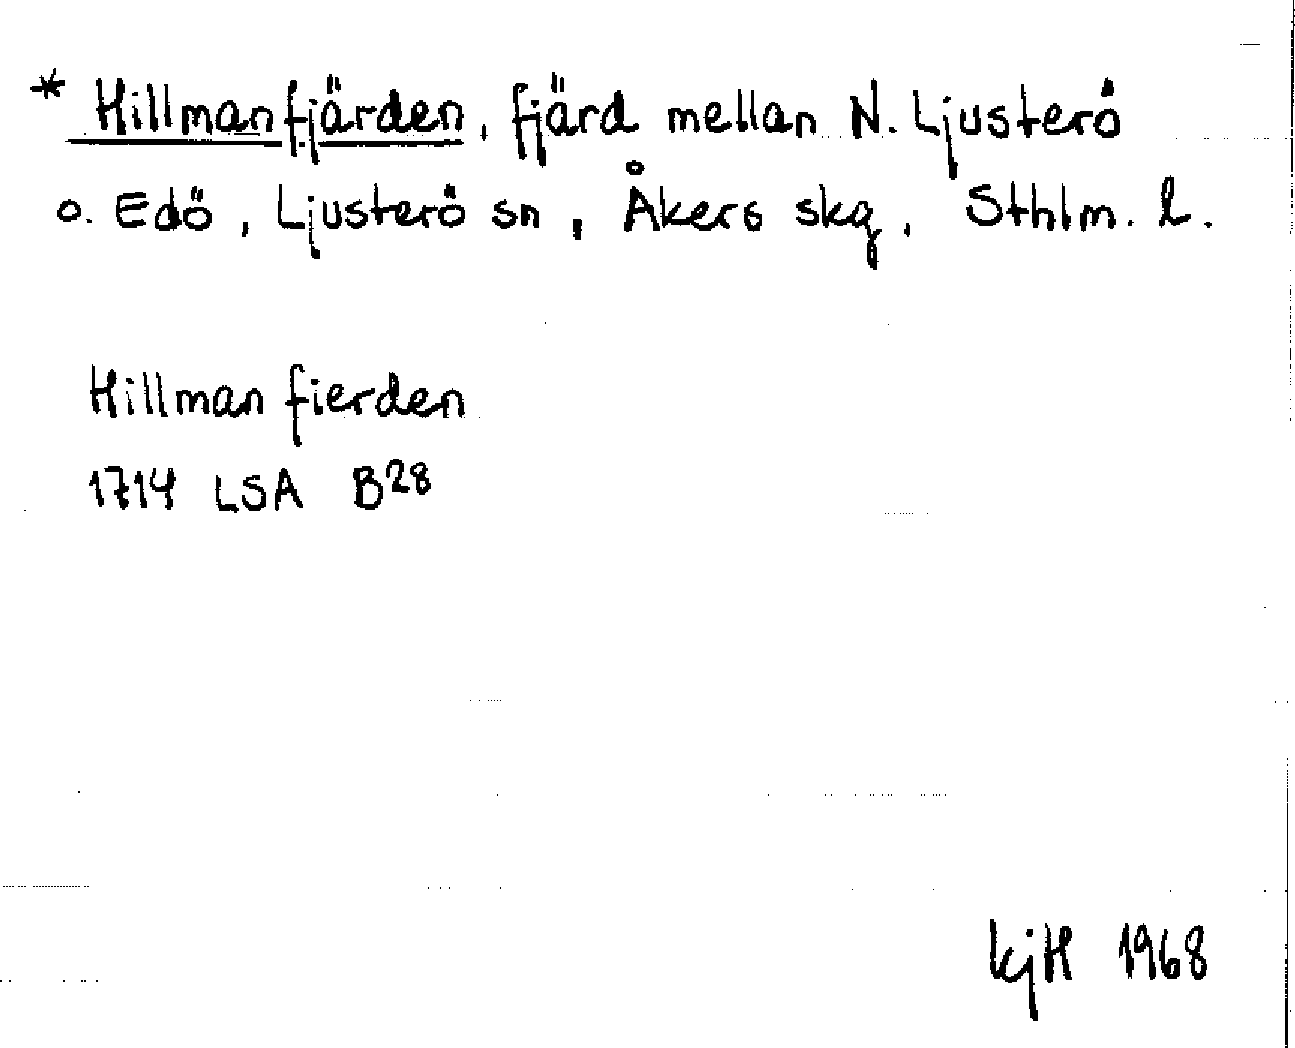 * Hillmanfjärden, fjärd mellan N. Ljusterö
o. Edö, Ljusterö sn, Åkers skg, Sthlm. l.
Hillman fierden
1714 LSA B28
kjH 1968